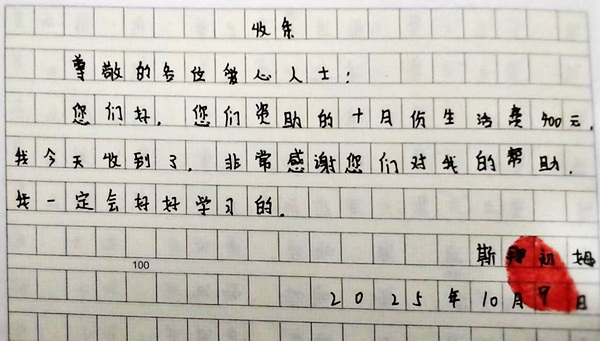 收条
尊敬的各位爱心人士:
您们好,您们资助的十月份生活费400元,
我今天收到了,非常感谢您们对我的帮助.
我一定会好好学习的.
斯 初姆
100
2025年10月9日